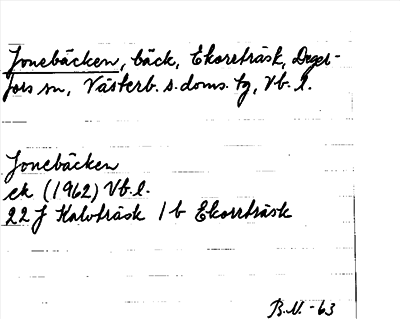 Jonebäcken, bäck, Ekorrträsk, Deger-
fors sn, Västerb. s. doms. tg, Vb. l.
Jonebäcken
ek (1962) Vb. l.
22 J Kalvträsk 1 b Ekorrträsk
B.N. -63